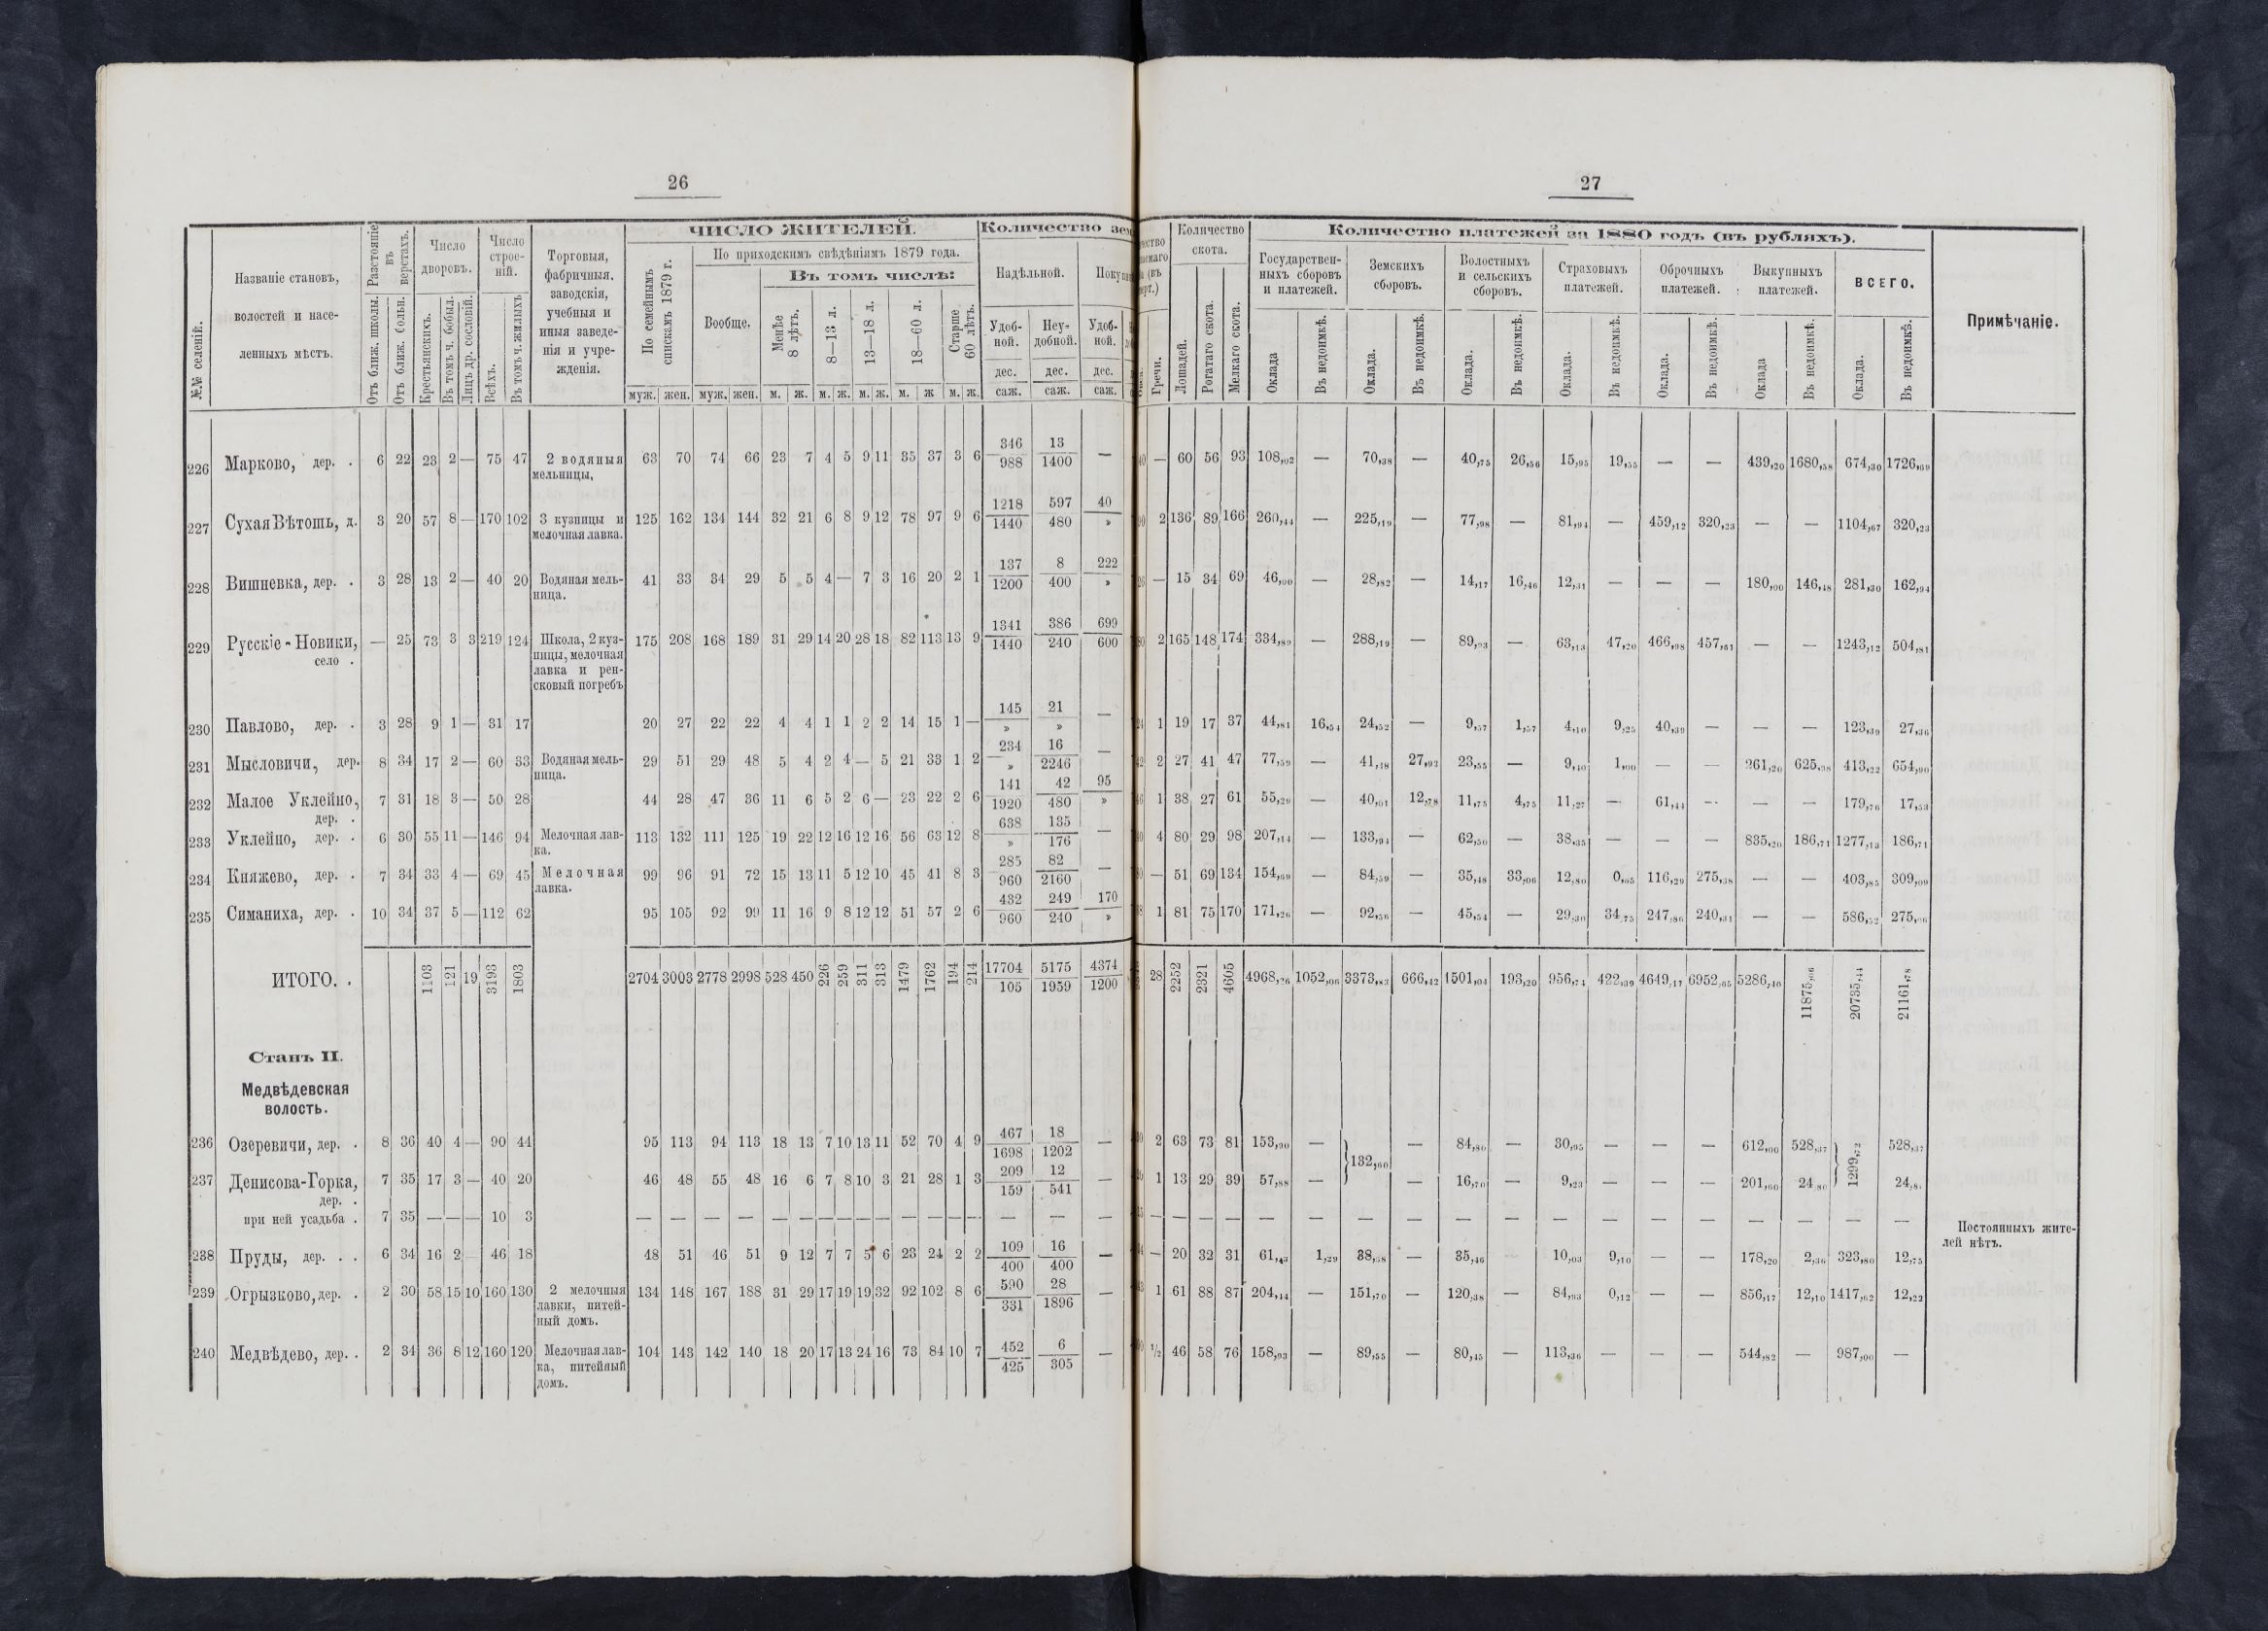 26
№№ селеній.
Названіе становъ, волостей и населенныхъ мѣстъ.
Разстояніе въ верстахъ.
Отъ ближ. школы.
Отъ ближ. больн.
Число дворовъ.
Крестьянскихъ.
Въ томъ ч. бобыл.
Лицъ др. сословій.
Число строеній.
Всѣхъ.
Въ томъ ч. жилыхъ
Торговыя, фабричныя, заводскія, учебныя и иныя заведенія и учрежденія.
ЧИСЛО ЖИТЕЛЕЙ.
По семейнымъ спискамъ 1879 г.
По приходскимъ свѣдѣніямъ 1879 года.
Вообще.
Въ томъ числѣ:
Менѣе 8 лѣтъ.
8—13 л.
13—18 л.
18—60 л.
Старше 60 лѣтъ.
муж. жен. муж. жен. м. ж. м. ж. м. ж. м. ж м. ж.
Количество
Надѣльной.
Удобной.
Неудобной.
Удобной.
дес. дес. дес.
саж. саж. саж.
226 Марково, дер. . 6 22 23 2 — 75 47 2 водяныя мельницы, 63 70 74 66 23 7 4 5 9 11 35 37 3 6 346/988 13/1400 —
227 Сухая Вѣтошь, д. 3 20 57 8 — 170 102 3 кузницы и мелочная лавка. 125 162 134 144 32 21 6 8 9 12 78 97 9 6 1218/1440 597/480 40/»
228 Вишневка, дер. . 3 28 13 2 — 40 20 Водяная мельница. 41 33 34 29 5 5 4 — 7 3 16 20 2 1 137/1200 8/400 222/»
229 Русскіе-Новики, село . — 25 73 3 3 219 124 Школа, 2 кузницы, мелочная лавка и ренсковый погребъ 175 208 168 189 31 29 14 20 28 18 82 113 13 9 1341/1440 386/240 699/600
230 Павлово, дер. . 3 28 9 1 — 31 17 20 27 22 22 4 4 1 1 2 2 14 15 1 — 145/» 21/» —
231 Мысловичи, дер. 8 34 17 2 — 60 33 Водяная мельница. 29 51 29 48 5 4 2 4 — 5 21 33 1 2 234/» 16/2246 —
232 Малое Уклейно, дер. . 7 31 18 3 — 50 28 44 28 47 36 11 6 5 2 6 — 23 22 2 6 141/1920 42/480 95/»
233 Уклейно, дер. . 6 30 55 11 — 146 94 Мелочная лавка. 113 132 111 125 19 22 12 16 12 16 56 63 12 8 638/» 135/176 —
234 Княжево, дер. . 7 34 33 4 — 69 45 Мелочная лавка. 99 96 91 72 15 13 11 5 12 10 45 41 8 3 285/960 82/2160 —
235 Симаниха, дер. . 10 34 37 5 — 112 62 95 105 92 99 11 16 9 8 12 12 51 57 2 6 432/960 249/240 170/»
ИТОГО. . 1103 121 19 3193 1803 2704 3003 2778 2998 528 450 226 259 311 313 1479 1762 194 214 17704/105 5175/1959 4374/1200
Станъ II.
Медвѣдевская
волость.
236 Озеревичи, дер. . 8 36 40 4 — 90 44 95 113 94 113 18 13 7 10 13 11 52 70 4 9 467/1698 18/1202 —
237 Денисова-Горка, дер. . 7 35 17 3 — 40 20 46 48 55 48 16 6 7 8 10 3 21 28 1 3 209/159 12/541 —
при ней усадьба . 7 35 — — — 10 3 — — — — — — — — — — — — — — — — —
238 Пруды, дер. . . 6 34 16 2 46 18 48 51 46 51 9 12 7 7 5 6 23 24 2 2 109/400 16/400 —
239 Огрызково, дер. . 2 30 58 15 10 160 130 2 мелочныя лавки, питейный домъ. 134 148 167 188 31 29 17 19 19 32 92 102 8 6 590/331 28/1896 —
240 Медвѣдево, дер. . 2 34 36 8 12 160 120 Мелочная лавка, питейный домъ. 104 143 142 140 18 20 17 13 24 16 73 84 10 7 452/425 6/305 —
27
Гречи.
Количество скота.
Лошадей.
Рогатаго скота.
Мелкаго скота.
Количество платежей за 1880 годъ (въ рубляхъ).
Государственныхъ сборовъ и платежей.
Земскихъ сборовъ.
Волостныхъ и сельскихъ сборовъ.
Страховыхъ платежей.
Оброчныхъ платежей.
Выкупныхъ платежей.
ВСЕГО.
Оклада Въ недоимкѣ. Оклада. Въ недоимкѣ. Оклада. Въ недоимкѣ. Оклада. Въ недоимкѣ. Оклада. Въ недоимкѣ. Оклада Въ недоимкѣ. Оклада. Въ недоимкѣ.
Примѣчаніе.
— 60 56 93 108,02 — 70,38 — 40,75 26,56 15,95 19,55 — — 439,20 1680,58 674,30 1726,69
2 136 89 166 260,44 — 225,19 — 77,98 — 81,94 — 459,12 320,23 — — 1104,67 320,23
— 15 34 69 46,00 — 28,82 — 14,17 16,46 12,31 — — — 180,00 146,48 281,30 162,94
2 165 148 174 334,89 — 288,19 — 89,93 — 63,13 47,20 466,98 457,61 — — 1243,12 504,81
1 19 17 37 44,81 16,54 24,52 — 9,57 1,57 4,10 9,25 40,39 — — — 123,39 27,36
2 27 41 47 77,59 — 41,18 27,92 23,55 — 9,40 1,00 — — 261,20 625,98 413,22 654,90
1 38 27 61 55,29 — 40,01 12,78 11,75 4,75 11,27 — 61,44 — — — 179,76 17,53
4 80 29 98 207,14 — 133,94 — 62,50 — 38,35 — — — 835,20 186,71 1277,13 186,71
— 51 69 134 154,69 — 84,59 — 35,48 33,06 12,80 0,65 116,29 275,38 — — 403,85 309,09
1 81 75 170 171,26 — 92,56 — 45,54 — 29,30 34,75 247,86 240,31 — — 586,52 275,06
28 2252 2321 4605 4968,26 1052,06 3373,82 666,42 1501,04 193,20 956,74 422,39 4649,17 6952,65 5286,46 11875,06 20735,44 21161,78
2 63 73 81 153,90 — 132,60 — 84,80 — 30,95 — — — 612,00 528,37 1299,72 528,37
1 13 29 39 57,88 — — 16,70 — 9,23 — — — 201,60 24,80 24,8
— — — — — — — — — — — — — — — — — — Постоянныхъ жителей нѣтъ.
— 20 32 31 61,43 1,29 38,58 — 35,46 10,03 9,10 — — 178,20 2,36 323,80 12,75
1 61 88 87 204,44 — 151,70 — 120,38 — 84,93 0,12 — — 856,17 12,10 1417,62 12,22
1/2 46 58 76 158,93 — 89,55 — 80,45 — 113,36 — — — 544,82 — 987,00 —